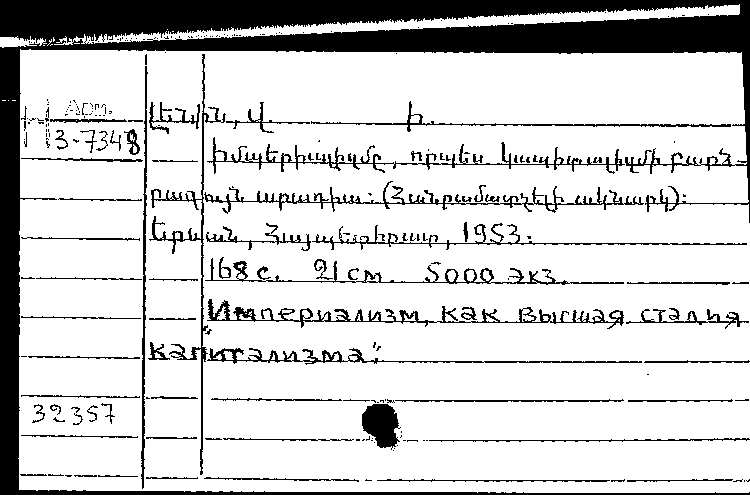 Арм.
3-7348
Լենին, Վ. Ի.
Իմպերիալիզմը, որպես կապիտալիզմի բարձ-
րագույն ստադիա: (Հանրամատչելի ակնարկ):
Երևան, Հայպետհրատ, 1953:
168 с. 21 см. 5000 экз.
"Империализм, как высшая стадия
капитализма".
32357